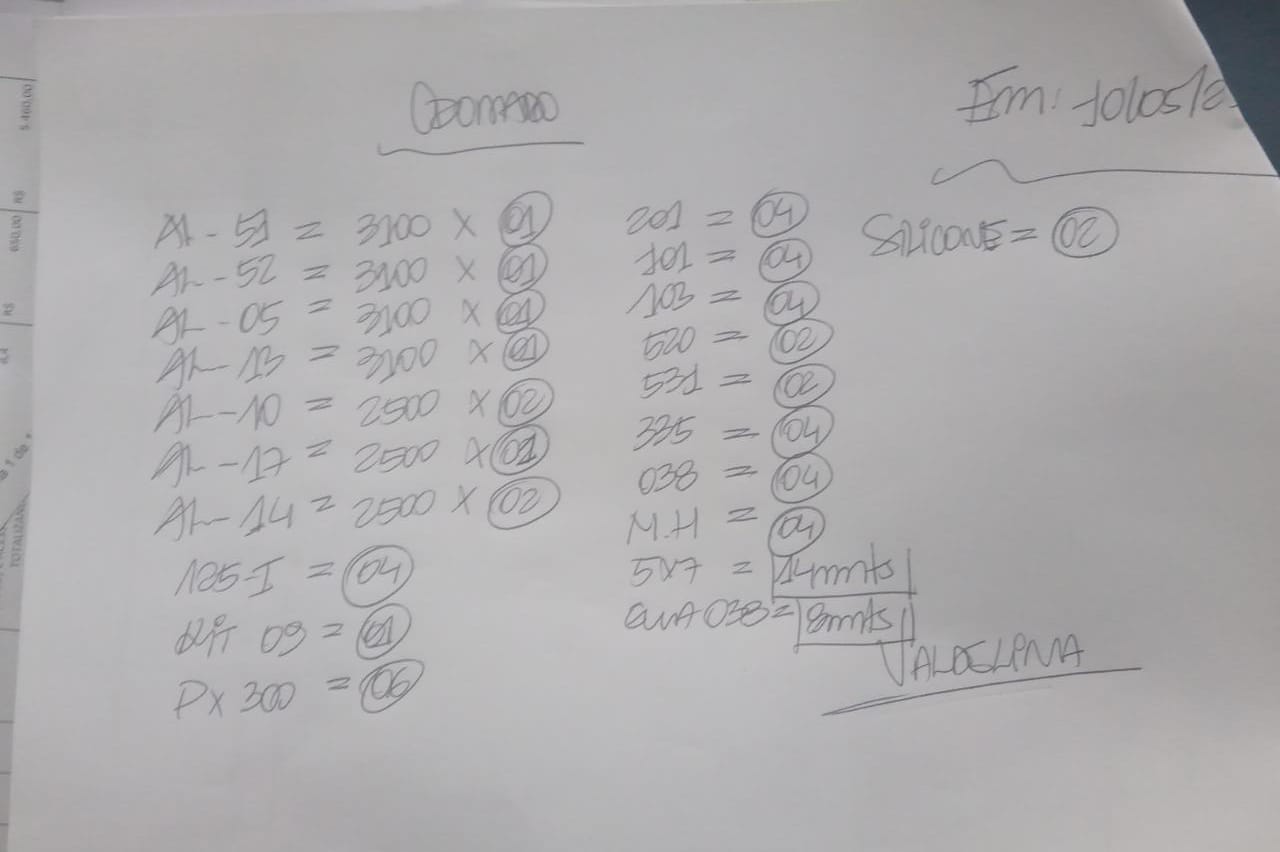 ODOMARO
Em: 10/05/2
AL-51 = 3100 X 01
AL-52 = 3100 X 01
AL-05 = 3100 X 01
AL-13 = 3100 X 01
AL-10 = 2500 X 02
AL-17 = 2500 X 01
AL-14 = 2500 X 02
185-I = 04
KIT 09 = 01
PX 300 = 06
201 = 04
101 = 04
103 = 04
520 = 02
531 = 02
335 = 04
038 = 04
M.H = 04
5X7 = 14mts
GUIA 038 = 8mts
SILICONE = 02
VALDELIMA
5.460,00
R$
650,00
R$